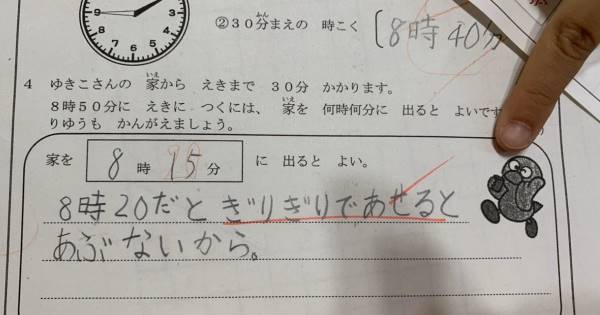 ②30分まえの 時こく
ふん
8時40分
4 ゆきこさんの 家から えきまで 30分 かかります。
いえ
8時50分に えきに つくには、 家を 何時何分に 出ると よいです
いえ
りゆうも かんがえましょう。
家を 8 時 15 分 に 出ると よい。
いえ
8時20だと ぎりぎりであせると
あぶないから。